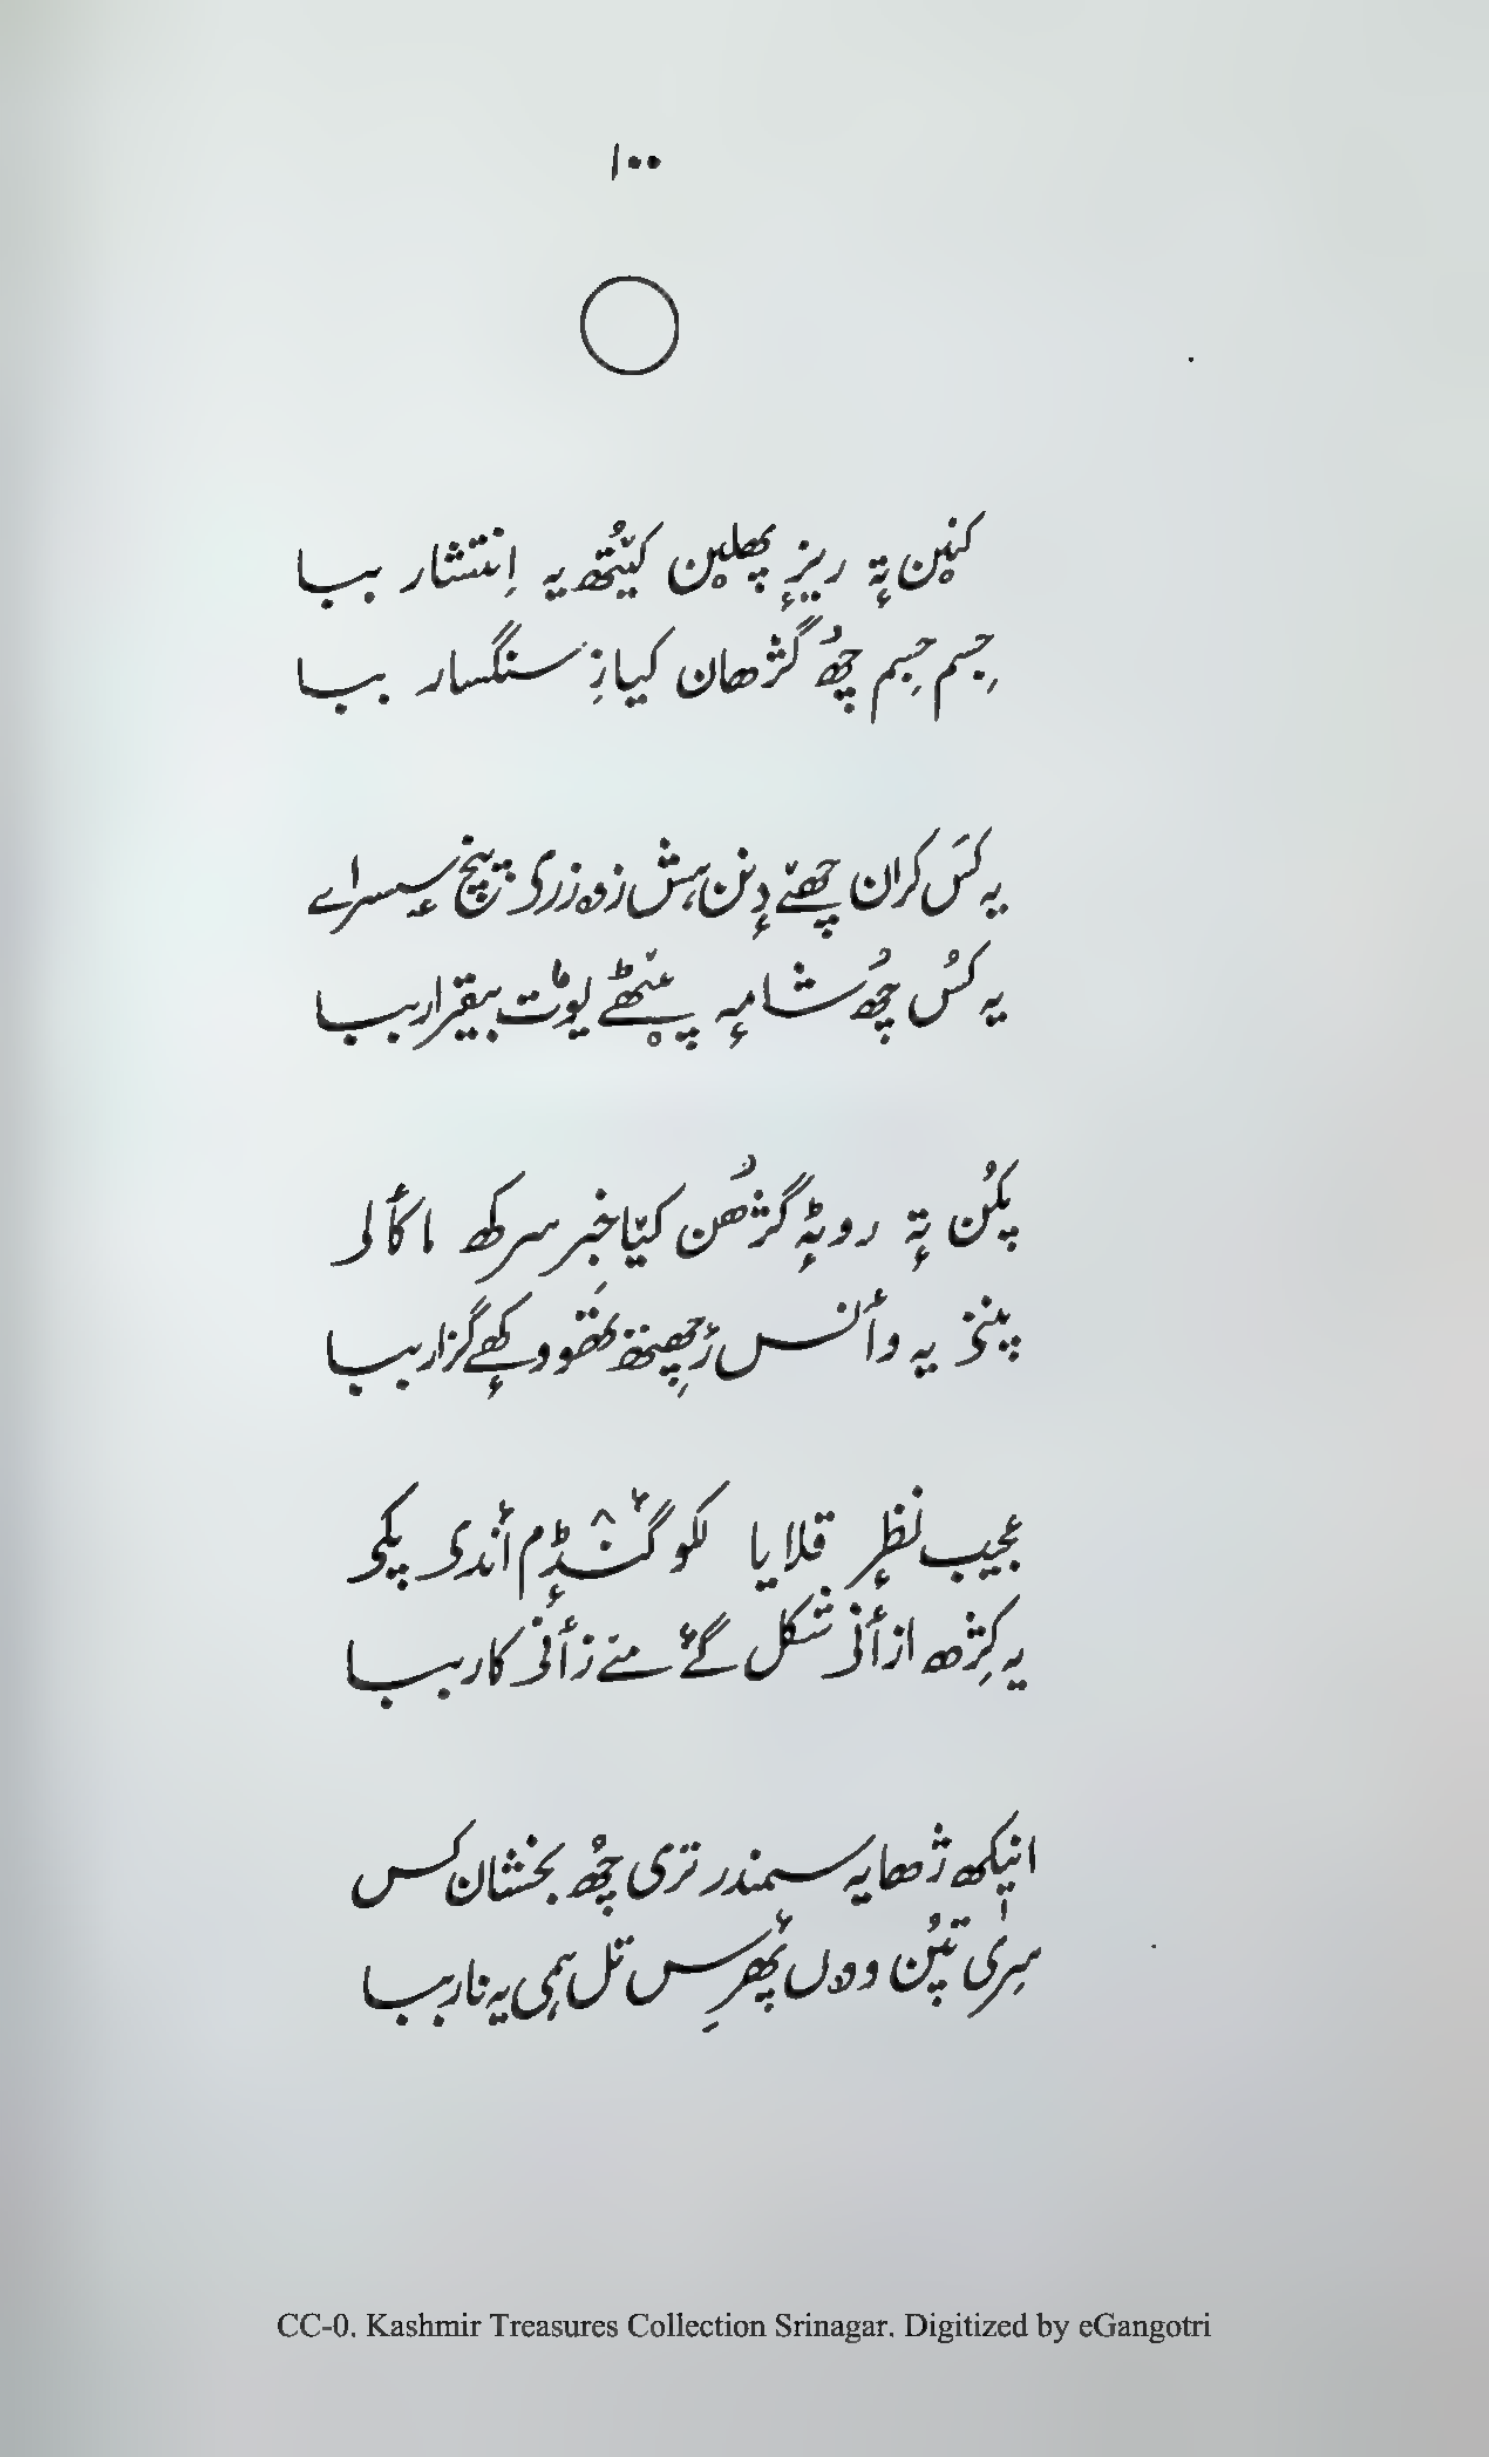 ۱۰۰
کنێن تہٕ ریزٕ پھلێن کیُتھ یہ اِنتشار ببا
جِسم جِسم چھُ گژھان کیازِ سنگسار ببا
یہ کَس کران چھےٚ دِنن ہِش زوٕ زری پیٚنج سٕسراے
یہ کُس چھُ شامہٕ پێٹھے یوٗت بیقرار ببا
پکُن تہٕ روٹہٕ گژھُن کیٚا خبر سرکھ ما کأل
پننۍ یہ وأنس رٔچھِنتھ تھٔو وکھٕے گزار ببا
عجیب نظرٕ قلایا لکو گٔنڈٕم أندی پکھی
یہ کِژھ از أنۍ شکل گٔے مےٚ زأنۍ کار ببا
انیکھ ژھایہ سمندر تری چھُ بخشان کس
سِریٰ تپُن وول پھٔرِس تل ہمی یہ نار ببا
CC-0. Kashmir Treasures Collection Srinagar. Digitized by eGangotri